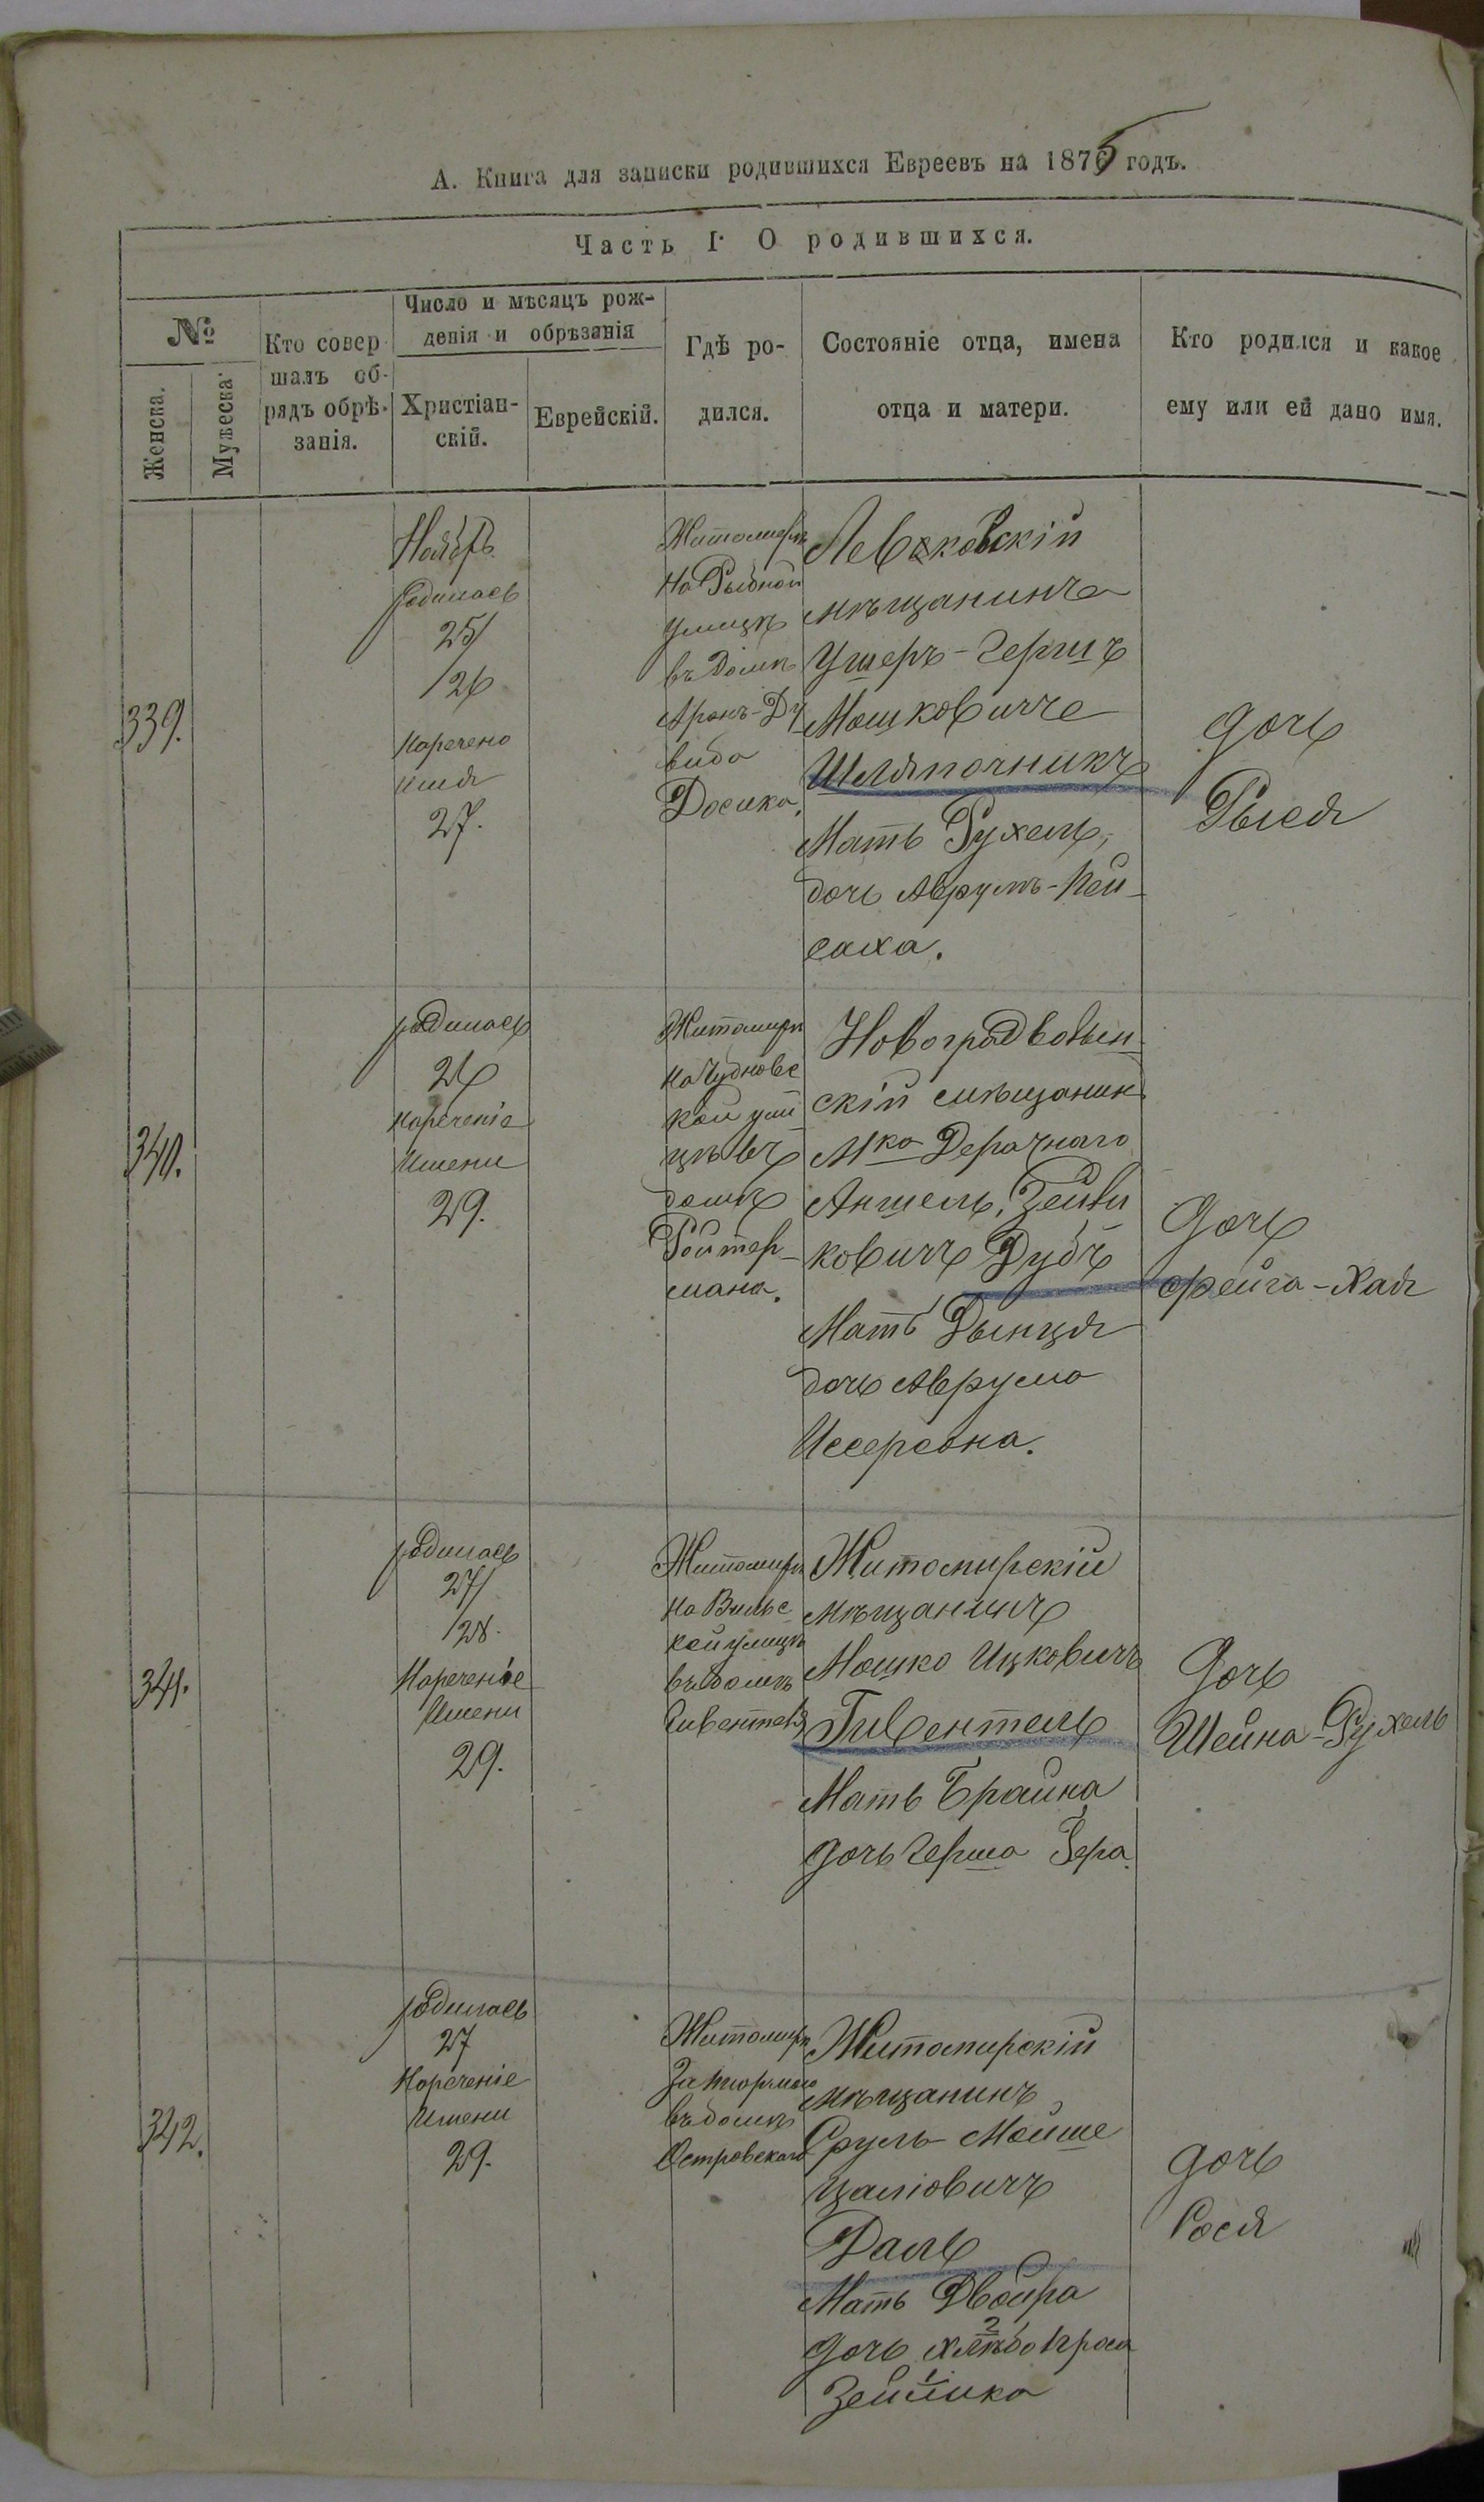 А. Книга для записки родившихся Евреевъ на 1875 годъ.
Часть I. О родившихся.
№
Женска.
Мужеска.
Кто совер-
шалъ об-
рядъ обрѣ-
занія.
Число и мѣсяцъ рож-
денія и обрѣзанія
Христіан-
скій.
Еврейскій.
Гдѣ ро-
дился.
Состояніе отца, имена
отца и матери.
Кто родился и какое
ему или ей дано имя.
339.
Ноябрь
родилась
25/
/26
Наречено
имя
27.
Житомирѣ
На Рыбной
улицѣ
въ домѣ
Аронъ-Ду
вида
Досика.
Левковскій
мѣщанинъ
Ушеръ-Гершъ
Мошковичъ
Шляпочникъ
Мать Рухель,
дочь Аврумъ-Пей-
саха.
дочь
Рыся
340.
родилась
26
Нареченіе
Имени
29.
Житомирѣ
На Чудновс
кой ули
цѣ въ
домѣ
Ройтер-
мана.
Новоградволын-
скій мѣщанин
М^ко Деражнаго
Аншель, Зейви
ковичъ Дубъ
Мать Дынця
дочь Аврума
Иссерсона.
дочь
Фейга-Хая
341.
родилась
27/
/28.
Нареченіе
Имени
29.
Житомирѣ
На Вильс
кой улицѣ
въ домѣ
Гивентеля
Житомирскій
мѣщанинъ
Мошко Ицковичъ
Гивентель
Мать Брайна
дочь Герша Зера.
дочь
Шейна-Рухель
342.
родилась
27
Нареченіе
Имени
29.
Житомирѣ
За тюрмою
въ домѣ
Островскаго
Житомирскій
мѣщанинъ
Сруль-Мойше
Цаліовичъ
Даль
Мать Двойра
дочь
Зейлика
дочь
Сося